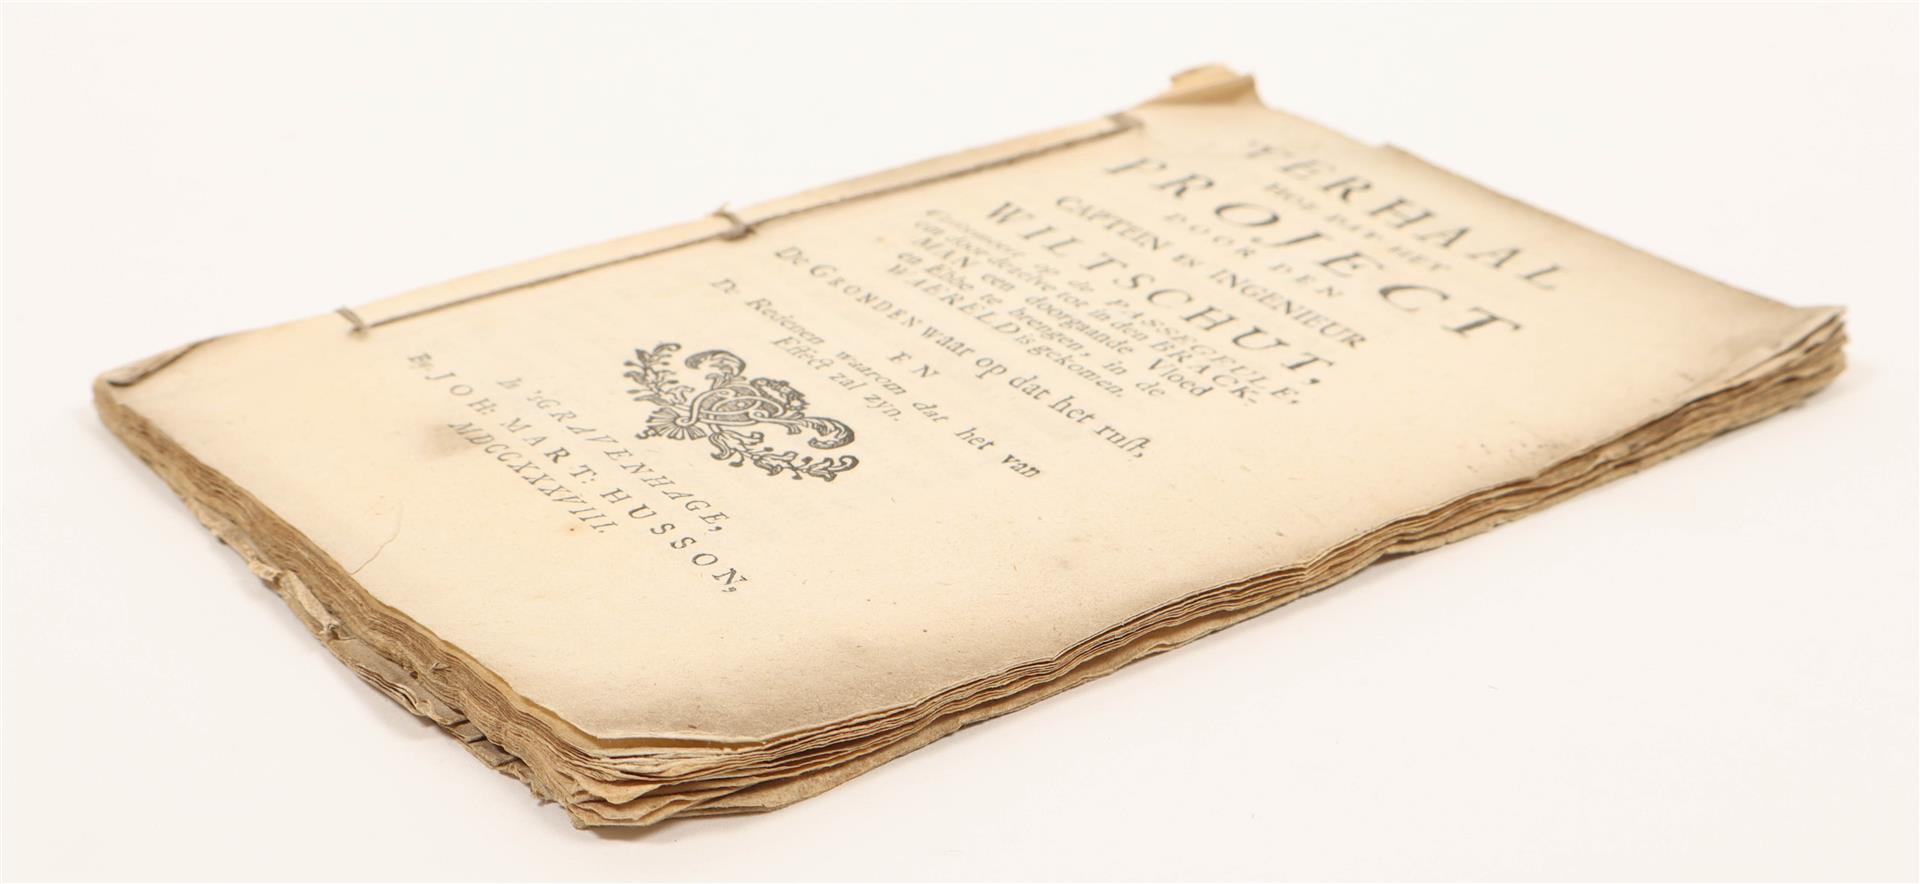 VERHAAL
HOE DAT HET
PROJECT
DOOR DEN
CAPTEIN EN INGENIEUR
WILTSCHUT,
Geformeert op de PASSEGEULE,
om door deselve tot in den BRACK-
MAN een doorgaande Vloed
en Ebbe te brengen, in de
WAERELD is gekomen.
EN
De GRONDEN waar op dat het rust,
De Redenen waarom dat het van
Effect zal zyn.
In 'sGRAVENHAGE,
By JOH: MART: HUSSON,
MDCCXXXVIII.